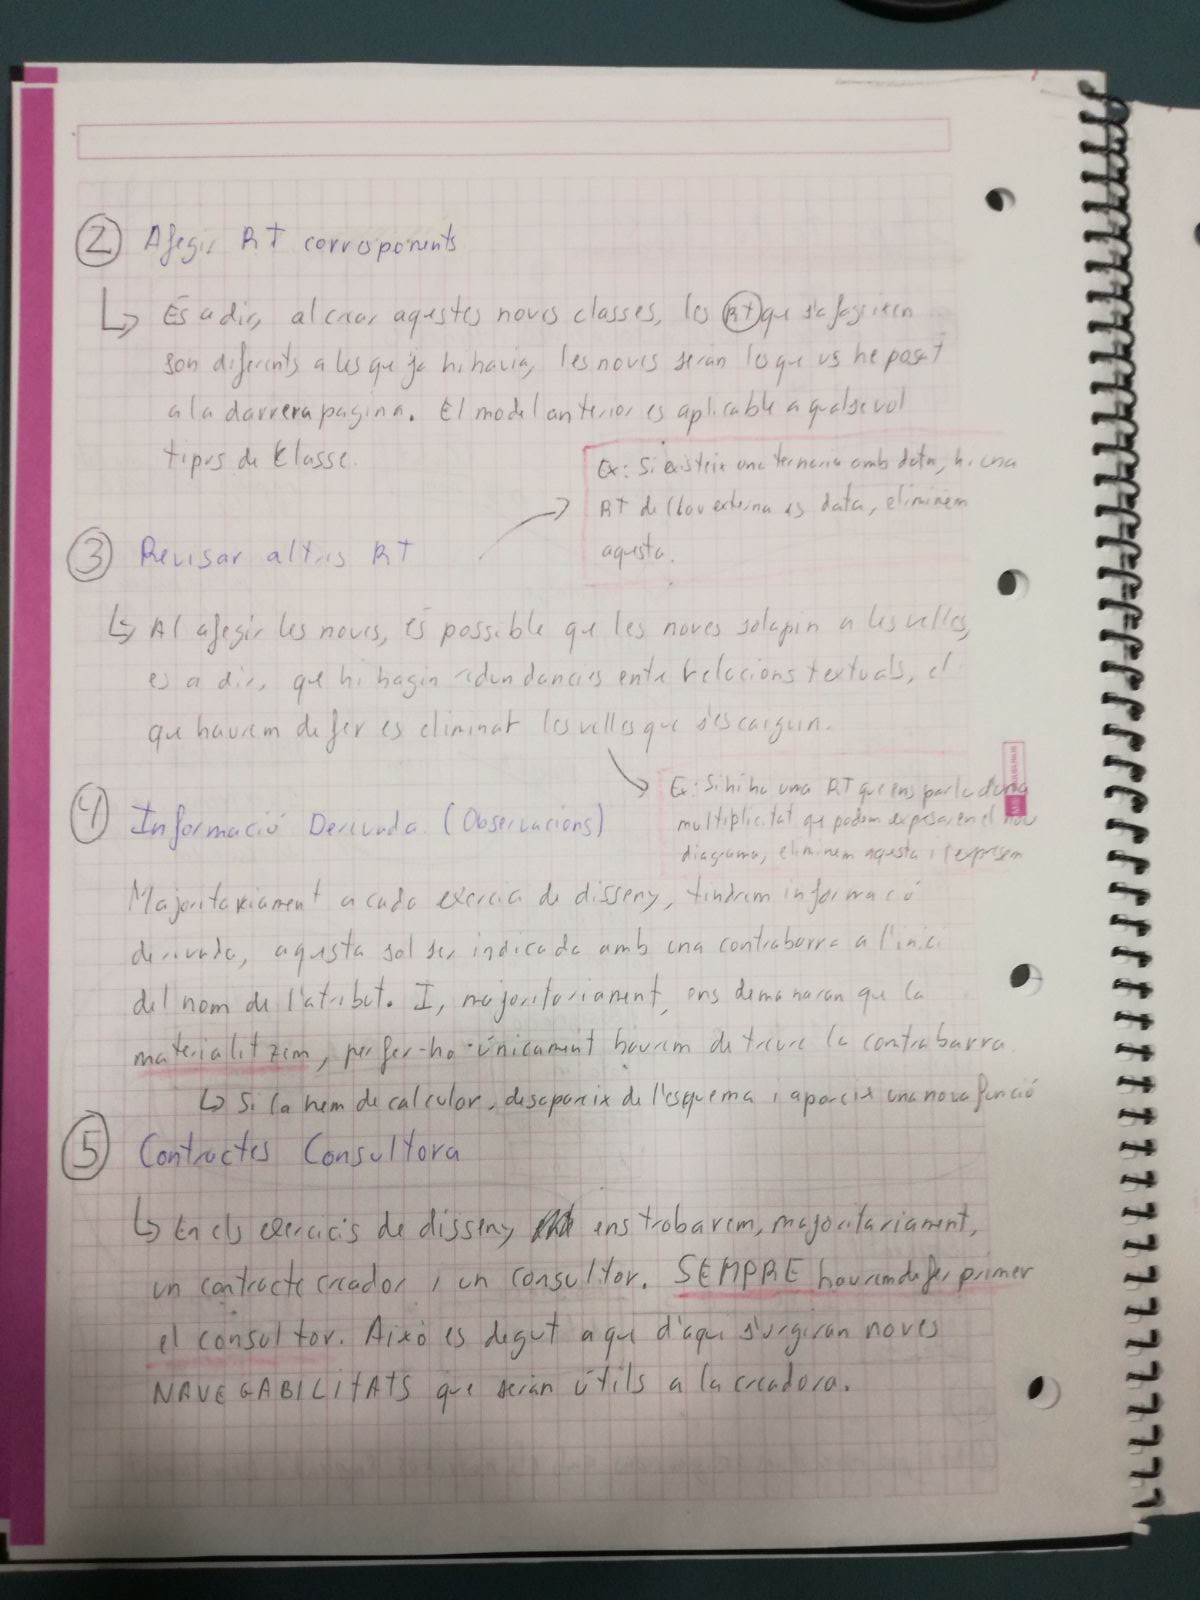 2 Afegir RT corresponents
↳ És a dir, al crear aquestes noves classes, les RT que s'afegeixen
son diferents a les que ja hi havia, les noves seràn les que us he posat
a la darrera pagina. El model anterior es aplicable a qualsevol
tipus de Classe.
Ex: Si existeix una ternaria amb data, hi una
RT de clau externa es data, eliminem
aquesta.
3 Revisar altres RT
↳ Al afegir les noves, és possible que les noves solapin a les velles,
es a dir, que hi hagin redundancies entre relacions textuals, el
que haurem de fer es eliminar les velles que s'escaiguin.
Ex: Si hi ha una RT que ens parla d'una
multiplicitat que podem expresar en el nou
diagrama, eliminem aquesta i l'expresem
4 Informació Derivada (Observacions)
Majoritariament a cada exercici de disseny, tindrem informació
derivada, aquesta sol ser indicada amb una contrabarra a l'inici
del nom de l'atribut. I, majoritariament, ens demanaran que la
materialitzem, per fer-ho únicament haurem de treure la contrabarra.
↳ Si la hem de calcular, desapareix de l'esquema i apareix una nova funció
5 Contractes Consultora
↳ En els exercicis de disseny ens trobarem, majoritariament,
un contracte creador i un consultor. SEMPRE haurem de fer primer
el consultor. Això es degut a que d'aqui s'urgiran noves
NAVEGABILITATS que seràn útils a la creadora.